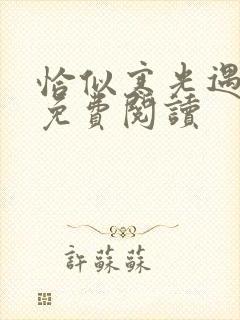 恰似寒光遇
免費閱讀
許蘇蘇